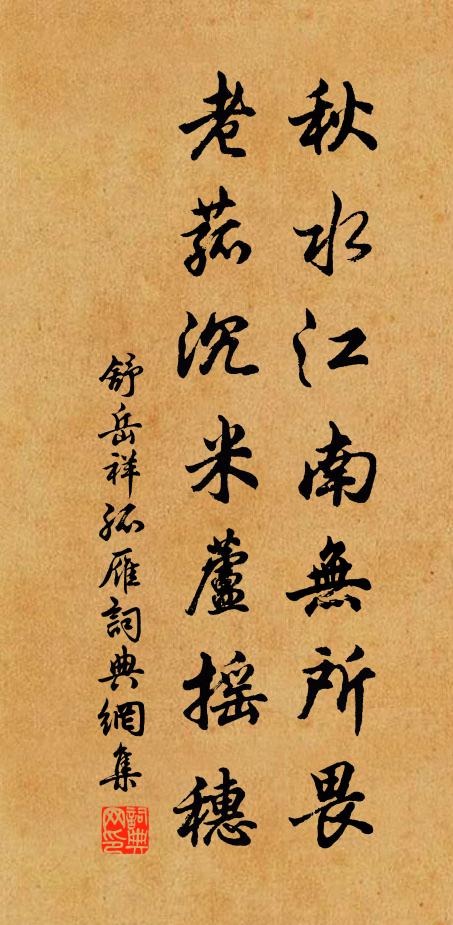 秋水江南無所畏
老菰沉米蘆摇穗
舒岳祥孤雁詞典網集
詞典網印